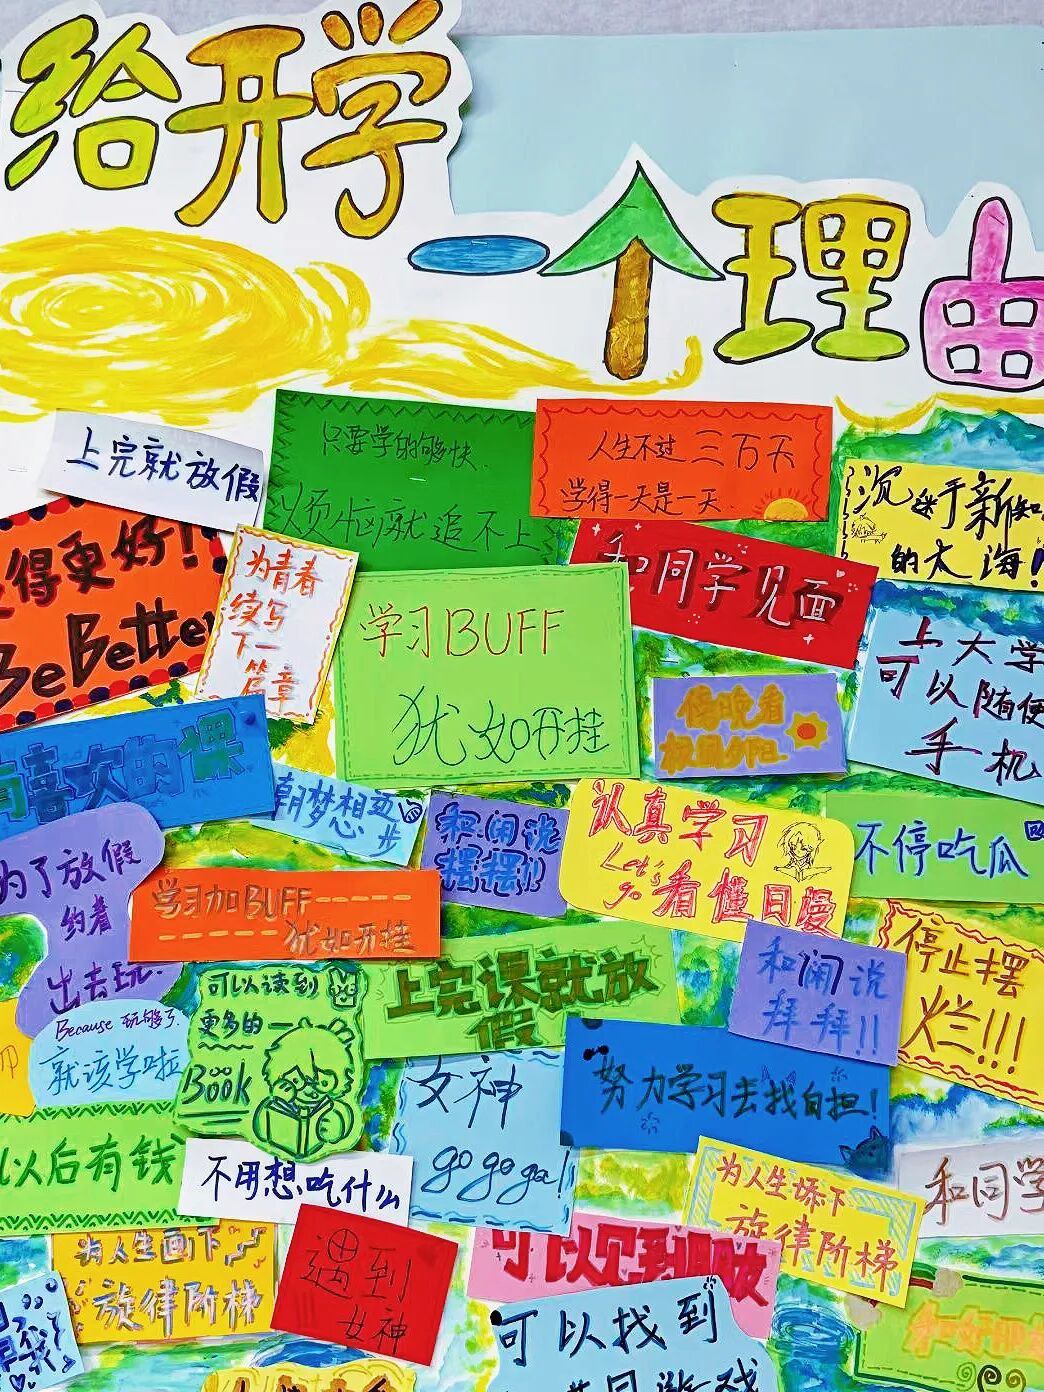 给开学
一个理由
上完就放假
只要学的够快
烦恼就追不上
人生不过三万天
学得一天是一天
沉迷于新知
的大海!
得更好!
BeBetter
为青春
续写
下一
篇章
学习BUFF
犹如开挂
和同学见面
上大学
可以随便
手机
傍晚看
校园夕阳
有喜欢的课
朝梦想迈
步
和闹说
摆摆!!
认真学习
Let's
go 看懂日漫
不停吃瓜
为了放假
约着
出去玩.
学习加BUFF
犹如开挂
可以读到
更多的
Book
上完课就放
假
和闹说
拜拜!!
停止摆
烂!!!
Because 玩够了.
就该学啦
女神
go go go!
努力学习去找自担!
以后有钱
不用想吃什么
为人生添下
旋律阶梯
和同学
为人生画下
旋律阶梯
遇到
女神
可以见到
可以找到